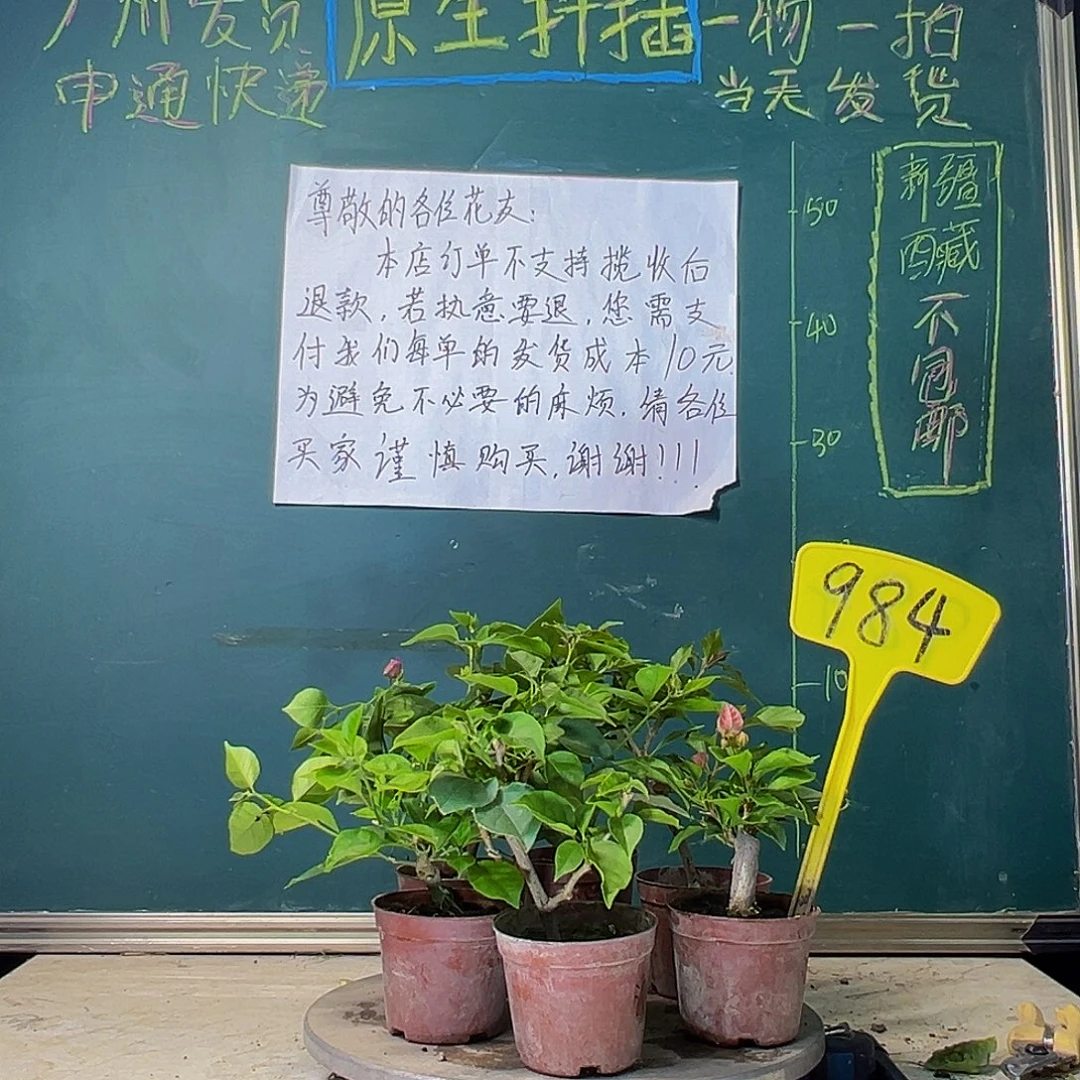 广州发货 原生扦插 一物一拍
申通快递 当天发货
尊敬的各位花友:
本店订单不支持揽收后
退款,若执意要退,您需支
付我们每单的发货成本10元.
为避免不必要的麻烦.请各位
买家谨慎购买,谢谢!!!
50
40
30
10
新疆
西藏
不包邮
984